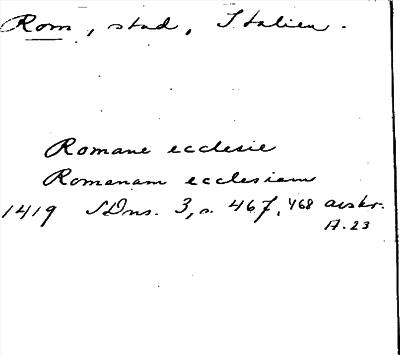 Rom, stad, Italien.
Romane ecclesie
Romanam ecclesiam
1419 SDns. 3, s. 467, 468 avskr.
A. 23